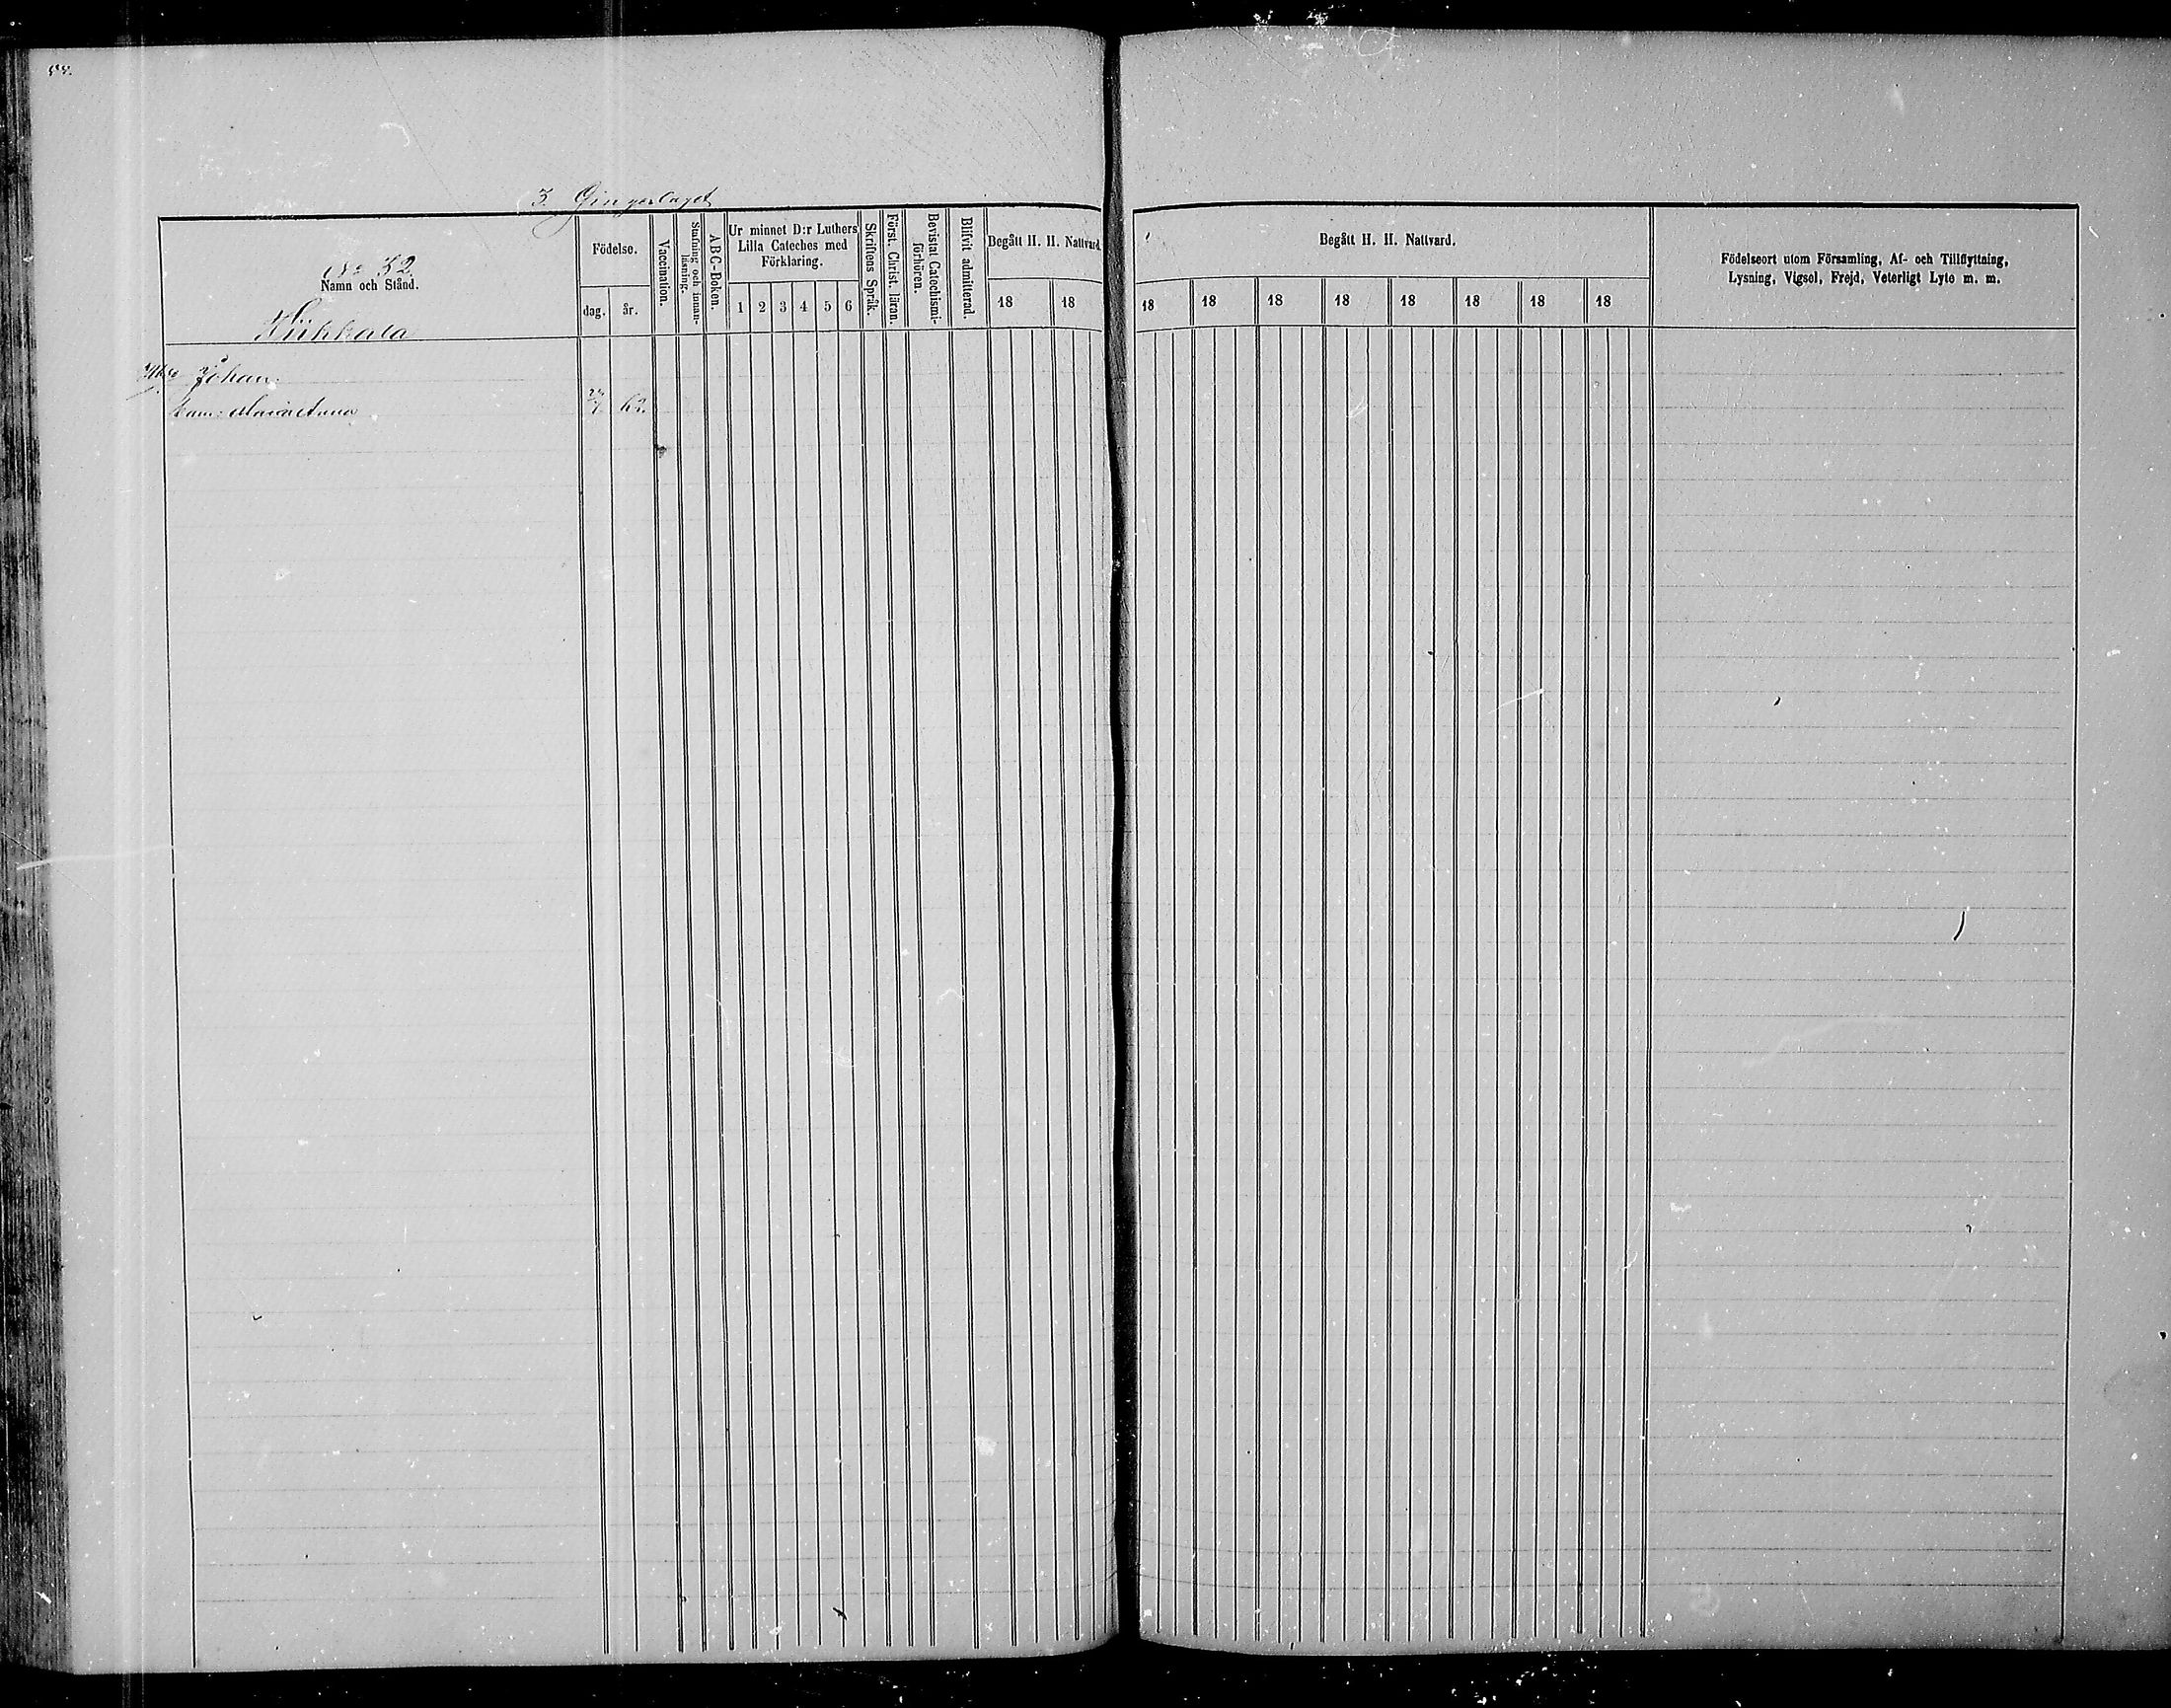 3.
No 32.
Namn och Stånd.
Födelse.
dag. år.
Vaccination.
Stafning och innan-
läsning.
ABC-Boken.
Ur minnet D:r Luthers
Lilla Cateches med
Förklaring.
1 2 3 4 5 6
Skriftens Språk.
Först. Christ. läran.
Bevistat Catechismi-
förhören.
Blifvit admitterad.
Begått H. H. Nattvard.
18 18
Johan
62.
Begått H. H. Nattvard.
18 18 18 18 18 18 18 18
Födelseort utom Församling, Af- och Tillflyttning,
Lysning, Vigsel, Frejd, Veterligt Lyte m. m.